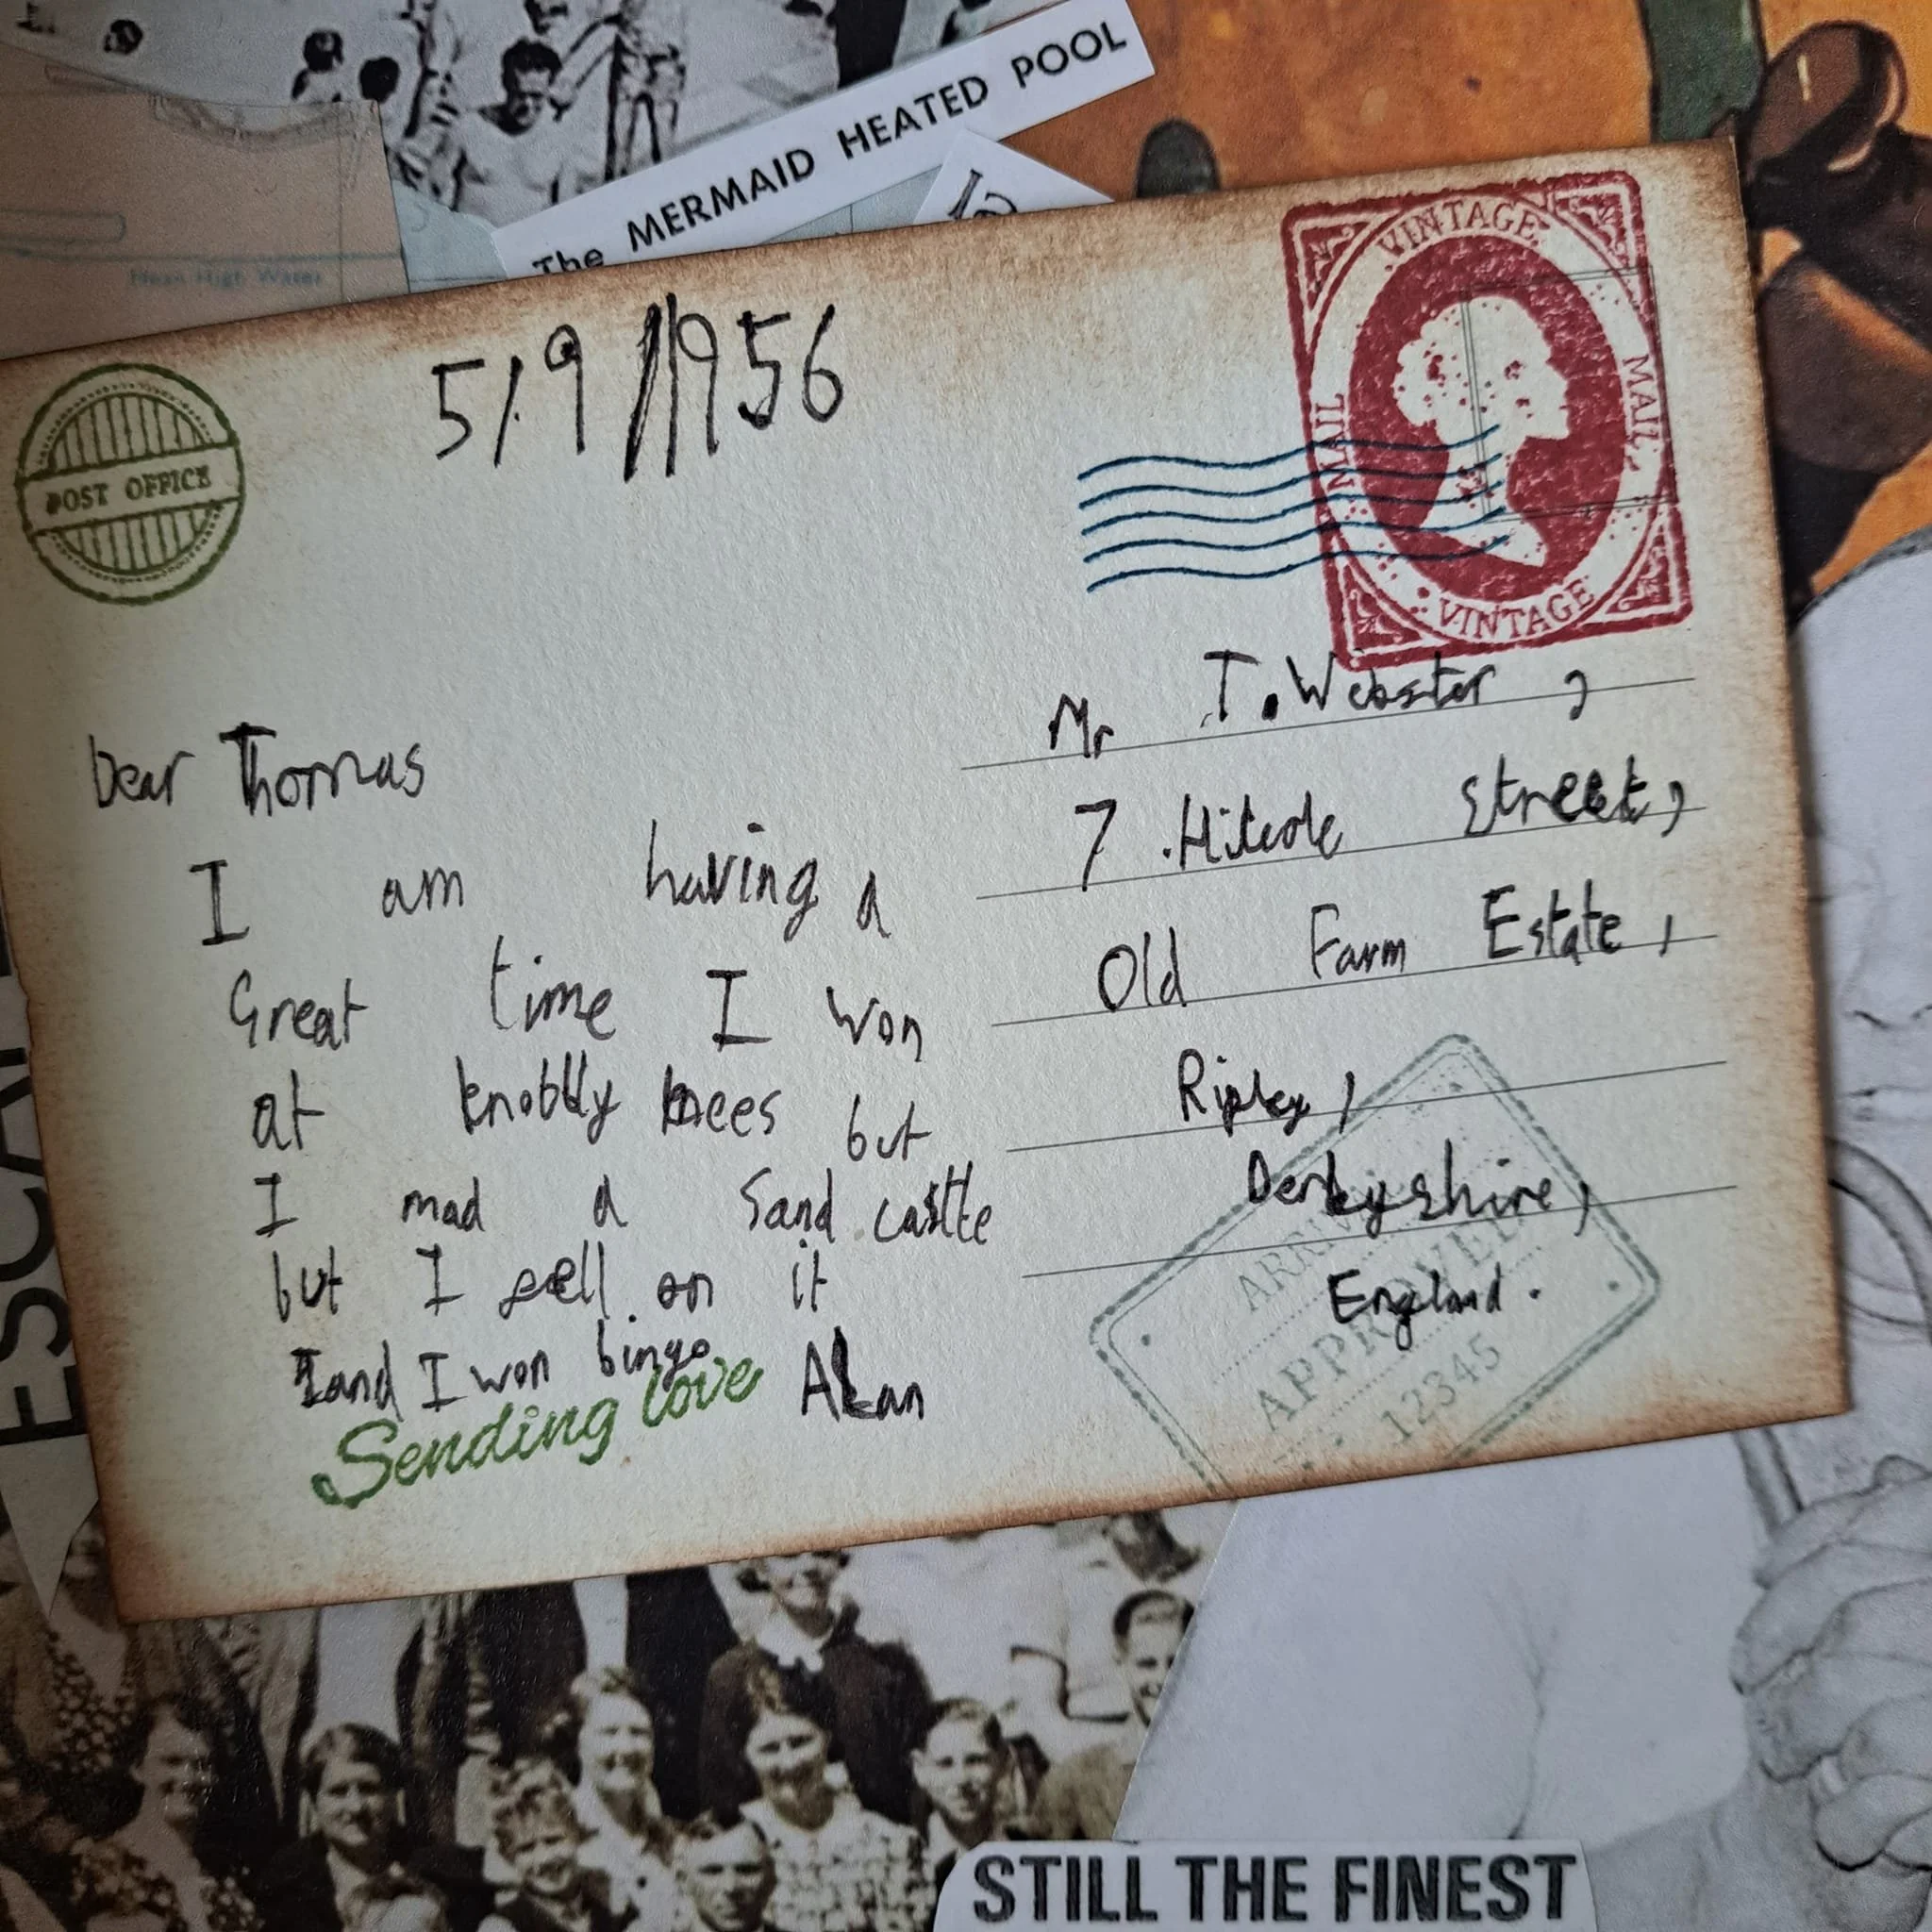 The MERMAID HEATED POOL
Mean High Water
VINTAGE
MAIL
MAIL
VINTAGE
POST OFFICE
5/9/1956
Dear Thomas
I am having a
Great time I won
at knobbly knees but
I mad a Sand castle
but I sell on it
and I won bingo
Sending love Alan
Mr T. Webster,
7 Street,
Old Farm Estate,
Ripley,
Derbyshire,
England.
APPROVED
12345
STILL THE FINEST